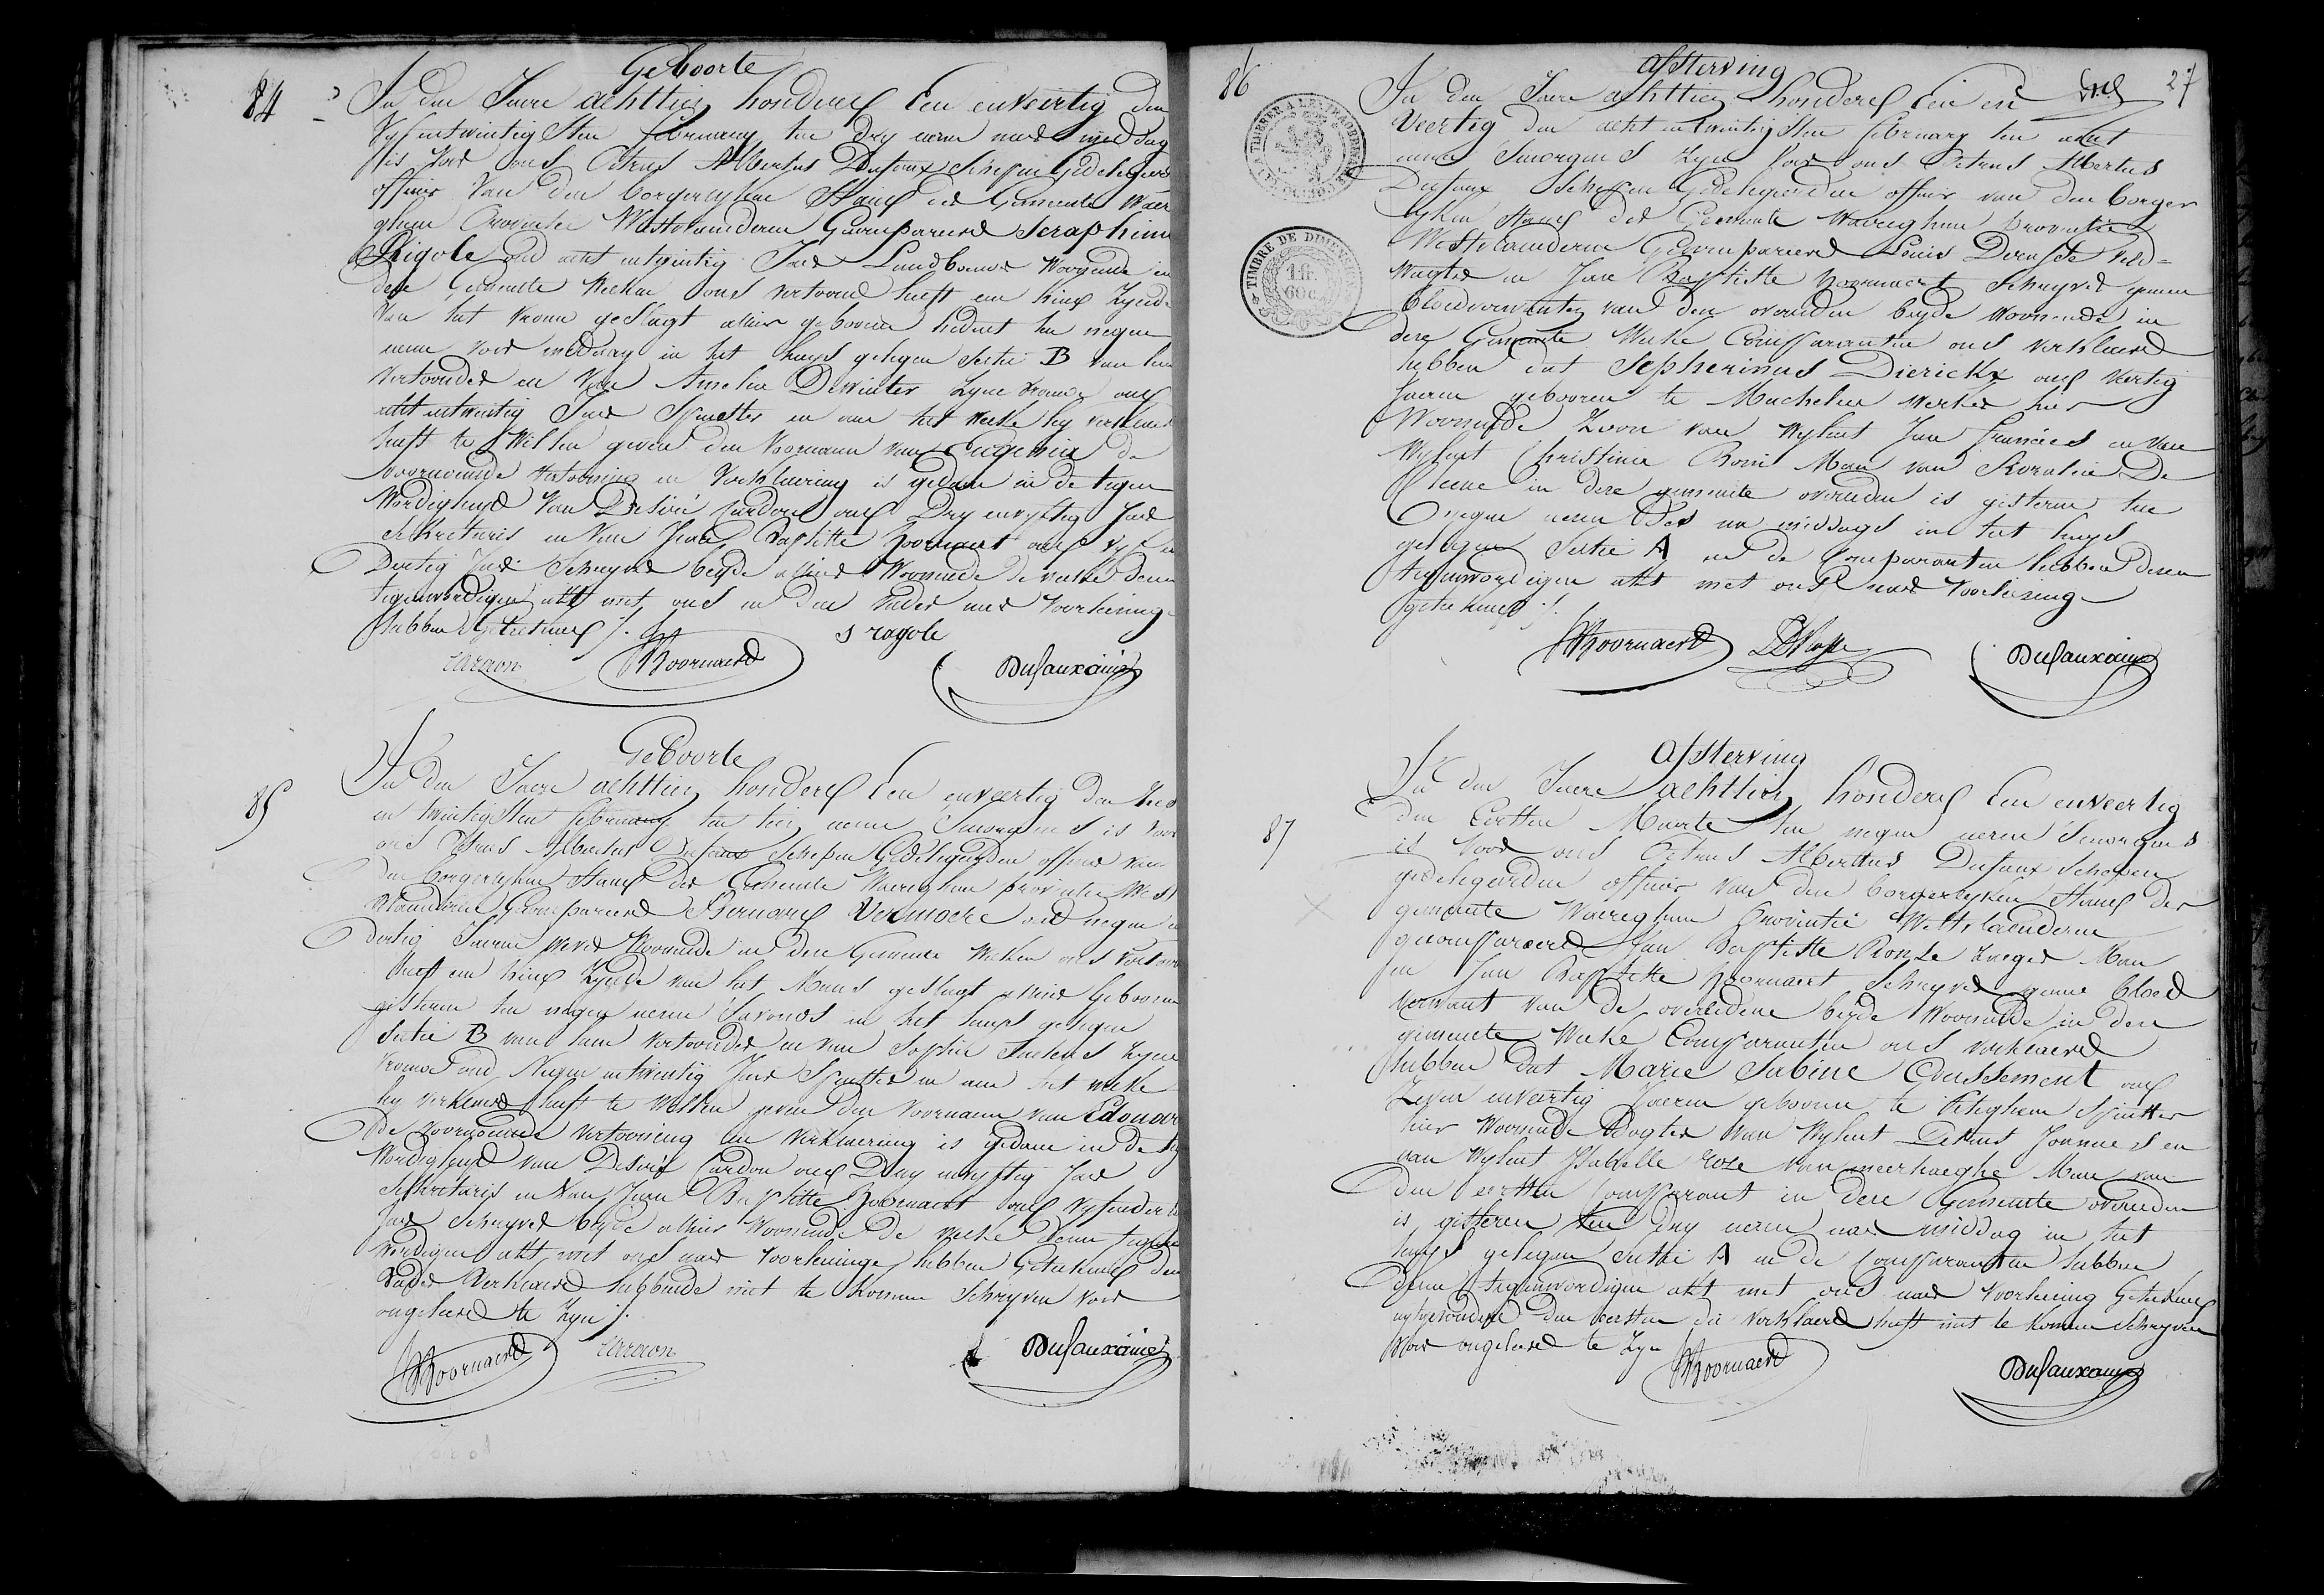 84
Geboorte
In den Jaere achttien honderd Een en veertig den
Vyfentwintigsten february ten dry uren naer middag
is voor ons Petrus Albertus Dufaux Schepen Gedelegeerd
officier van den borgerlyken Staet der Gemeente Waer
ghem Provintie Westvlaenderen Gecompareerd Seraphin
Rigole oud acht entwintig Jaer Landbouwer woonende in
dese Gemeente Welken ons vertoond heeft een kind zynde
van het vrouw geslagt alhier gebooren hedent ten negen
uren voor middag in het huys gelegen Sectie B van hem
vertoonder en van Amelia Dewinter zyne vrouw oud
acht entwintig Jaer Spinetter en aen het welke hy verklaerd
heeft te Willen geven den Voornaem van Eugenia de
voornoemde vertooning en verklaering is gedaen in de tegen
Wordigheyd van Desiré Cardon oud Dry envyftig Jaer
Sekretaris en van Jean Baptiste Hoornaert oud vyf en
Dertig Jaer Schryver beyde alhier Woonende de welke desen
tegenwordigen akt met ons en den vader naer voorlesing
hebben Geteekend /.
Cardon
JBHoornaerd
s ragole
Dufauxainé
85
Geboorte
In den Jaere achttien honderd Een enveertig den
en twintigsten february ten tien uren Smorgens is voor
ons Petrus Albertus Dufaux Schepen Gedelegeerden officier van
den borgerlyken Staet der Gemeente Waereghem provintie West
vlaenderen Gecompareerd Bernard Vermoere oud negen en
dertig Jaeren wever Woonende in dese Gemeente Welken ons vertoond
heeft een kind zynde van het Mans geslagt alhier Gebooren
gisteren ten negen uren Savonds in het huys gelegen
Sectie B van hem vertoonder en van Sophie zyne
vrouw oud Negen entwintig Jaer Spinetter en aen het welke
hy verklaerd heeft te Willen geven den Voornaem van Edouard
de voornoemde vertooning en verklaering is gedaen in de teg
Wordigheyd van Desiré Cardon oud Dry envyftig Jaer
Sekretaris en van Jean Baptiste Hoornaert oud vyfendertig
Jaer Schryver beyde alhier Woonende de welke desen tegen
Wordigen akt met ons naer voorlesinge hebben Geteekend den
Vader Verklaerd hebbende niet te konnen Schryven voor
ongeleerd te zyn /.
JBHoornaerd
Cardon
Dufauxainé
86
27
Afsterving
In den Jaere achttien honderd Een en
Veertig den acht entwintigsten february ten acht
uren Smorgens zyn voor ons Petrus Albertus
Dufaux Schepen Gedelegeerden officier van den borger
lyken Staet der Gemeente Waereghem Provintie
Westvlaenderen Gecompareerd Louis Veld-
Wagter en Jean Baptiste Hoornaert Schryver geene
bloedverwanten van den overleden beyde Woonende in
dese Gemeente Welke Comparanten ons verklaerd
hebben dat Sepherinus Dierickx oud Veertig
Jaeren gebooren te Machelen Werker hier
Woonende Zoon van wylent Jan Francies en van
Wylent Christina Man van Roralia De
Clerc in dese gemeente overleden is gisteren ten
negen uren Des na middags in het huys
gelegen Sectie A en de Comparanten hebben desen
tegenwordigen akt met ons naer voorlesing
geteekend /.
JBHoornaerd
Dufauxainé
TIMBRE DE DIMENSION
1 fr.
60 c.
87
Afsterving
In den Jaere achttien honderd Een enveertig
den Eersten Maerte ten negen uren Smorgens
is voor ons Petrus Albertus Dufaux Schepen
gedelegeerden officier van den borgerlyken Staet der
gemeente Waereghem Provintie Westvlaenderen
gecompareerd Jan Baptiste Ronse Man
en Jan Baptiste Hoornaert Schryver geene bloed
verwant van de overledene beyde Woonende in dese
gemeente Welke Comparanten ons verklaerd
hebben dat Marie Sabine Coussement oud
Zeven enveertig Jaeren gebooren te Peteghem Spinetter
hier Woonende dogter van Wylent Petrus Joannes en
van Wylent Isabelle Rose Van meerhaeghe Man van
den eersten Comparant in dese Gemeente overleden
is gisteren ten dry uren naer middag in het
huys gelegen Sectie A en de Comparanten hebben
desen tegenwordigen akt met ons naer voorlesing Geteekend
uytgenomen den eersten die verklaerd heeft niet te konnen Schryven
voor ongeleerd te zyn
JBHoornaerd
Dufauxainé